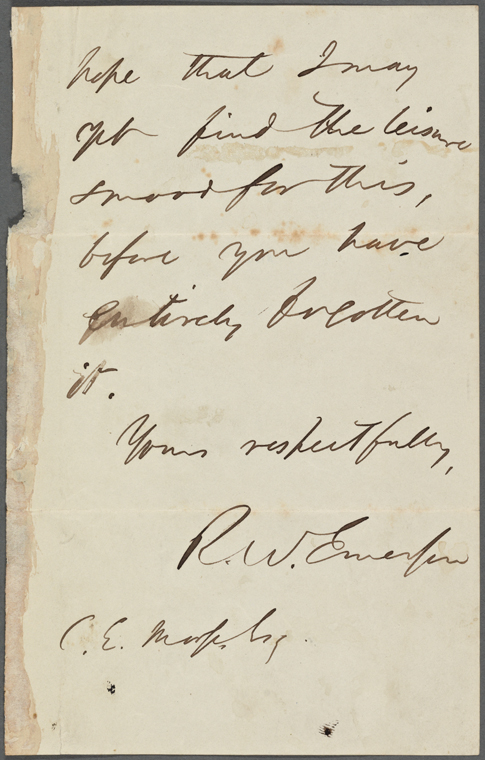 hope that I may
yet find the leisure
& mood for this,
before you have
entirely forgotten
it.
Yours respectfully,
R. W. Emerson
C. E. Esq.